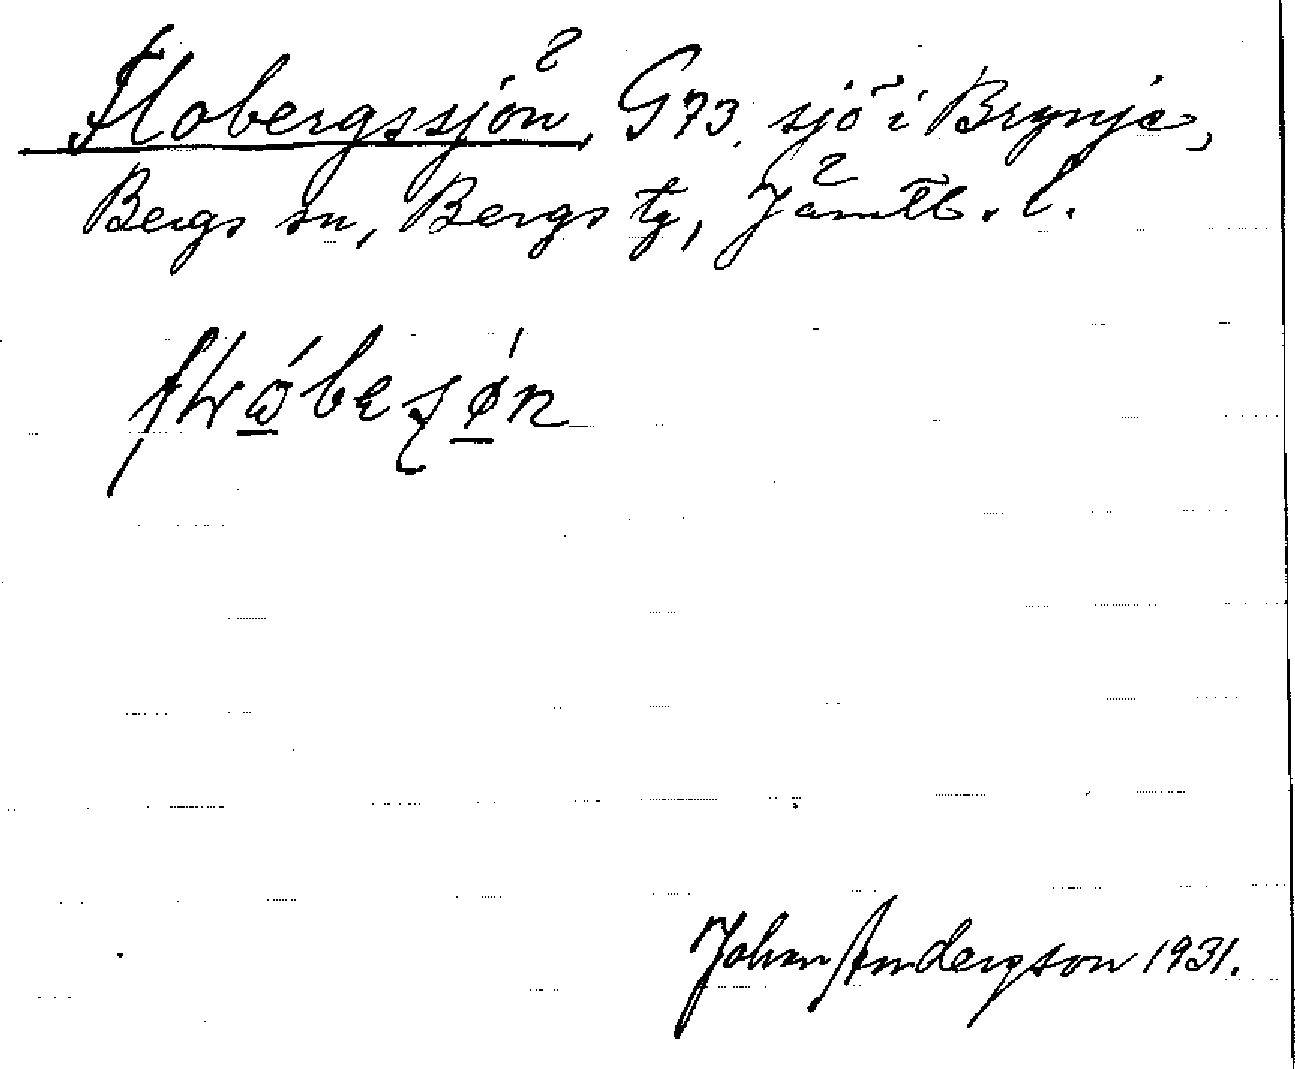 Flobergssjön, G73. sjö i Brynje,
Bergs sn, Bergs tg, Jämtl. l.
Johan Andersson 1931.